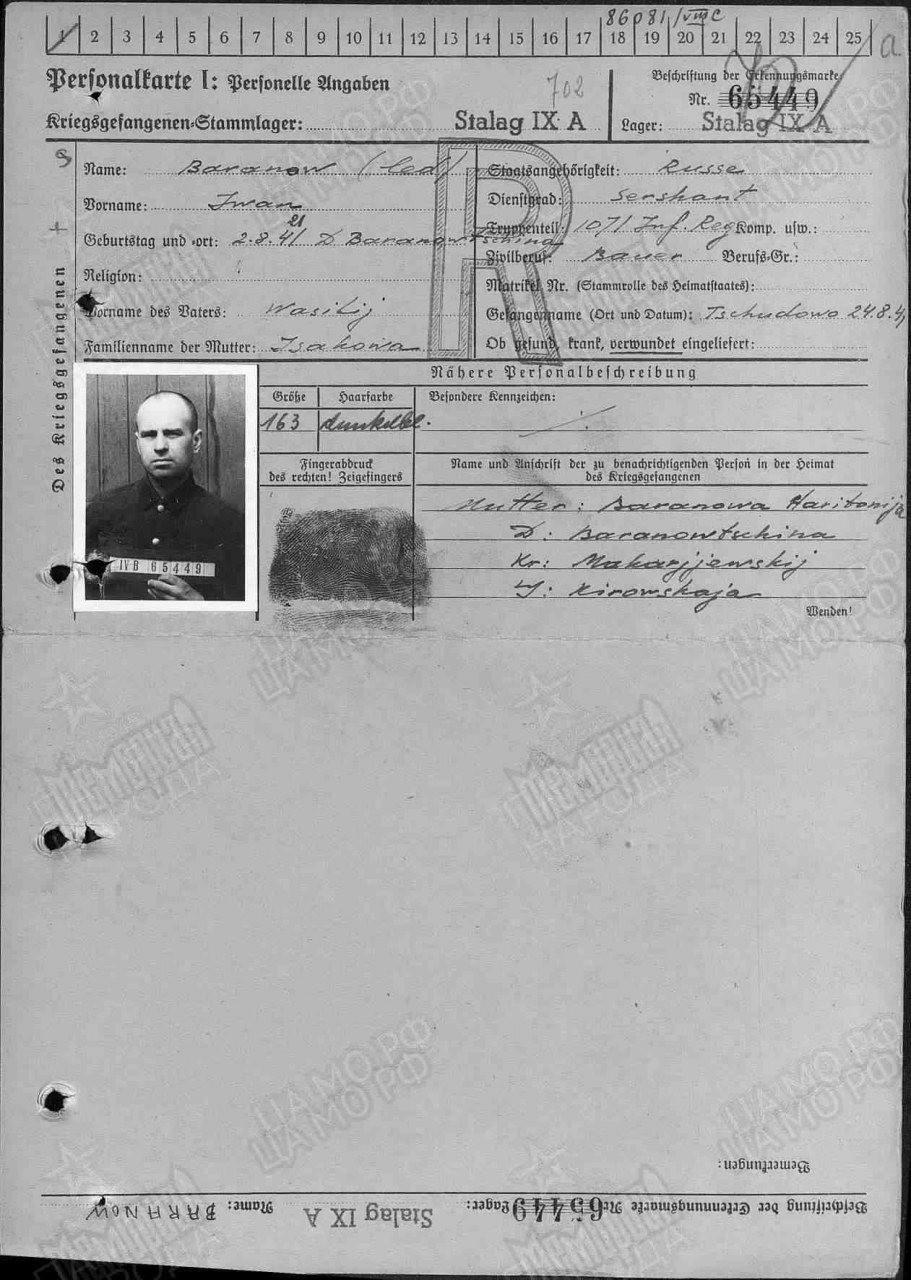 86081/VIIIC
1 2 3 4 5 6 7 8 9 10 11 12 13 14 15 16 17 18 19 20 21 22 23 24 25
a
Personalkarte I: Personelle Angaben
702
Beschriftung der Erkennungsmarke
Nr. 65449
Kriegsgefangenen-Stammlager: Stalag IX A
Lager: Stalag IX A
Des Kriegsgefangenen
Name: Baranow (led)
Staatsangehörigkeit: Russe
Vorname: Iwan
Dienstgrad: Sershant
21
Geburtstag und -ort: 2.8.41 D Baranowtschina
Truppenteil: 1071 Inf. Reg Komp. usw.:
Religion:
Zivilberuf: Bauer Berufs-Gr.:
Matrikel Nr. (Stammrolle des Heimatstaates):
Vorname des Vaters: Wasilij
Gefangennahme (Ort und Datum): Tschudowo 24.8.4
Familienname der Mutter: Isakowa
Ob gesund, krank, verwundet eingeliefert:
R
Nähere Personalbeschreibung
Größe Haarfarbe Besondere Kennzeichen:
163 dunkelbl. ./.
Fingerabdruck
des rechten! Zeigefingers
Name und Anschrift der zu benachrichtigenden Person in der Heimat
des Kriegsgefangenen
Mutter: Baranowa Haritonija
D: Baranowtschina
Kr: Makarjjewskij
J: Kirowskaja
IVB 65449
Wenden!
ЦАМО РФ
ЦАМО РФ
Мемориал
НАРОДА
Bemerkungen:
Beschriftung der Erkennungsmarke Nr. 65449 Lager: Stalag IX A Name: BARANOW